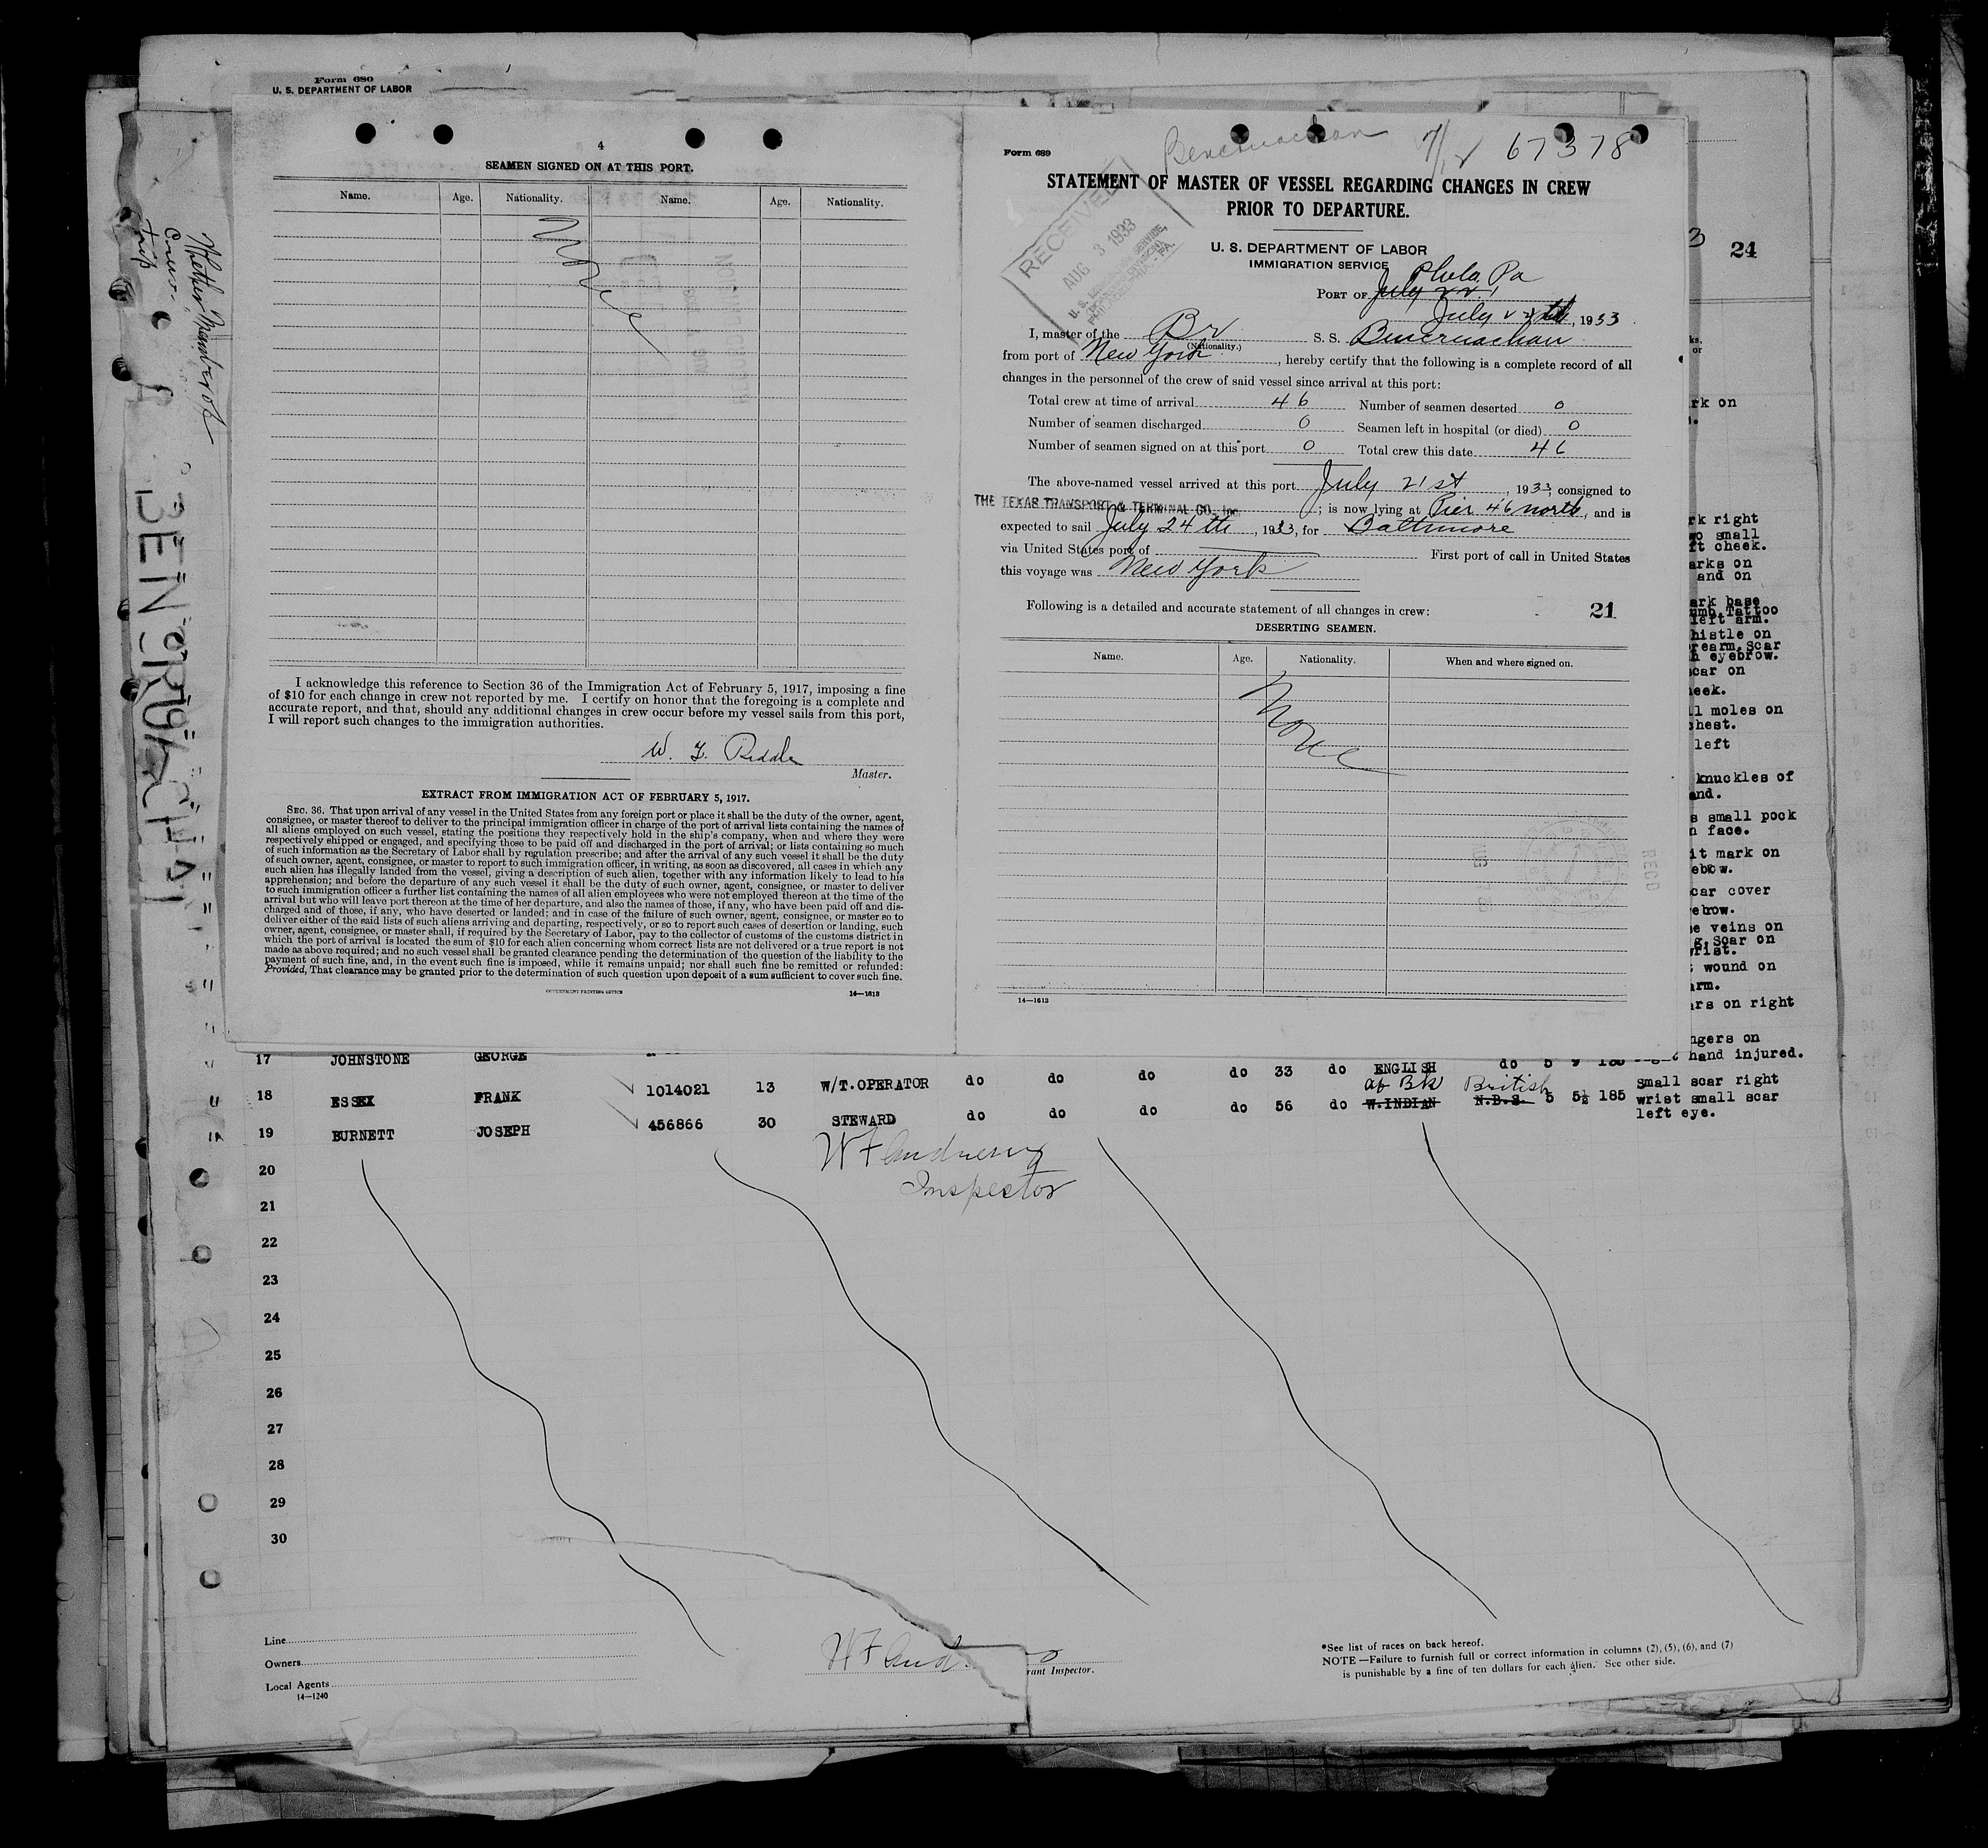 Form 680
U. S. DEPARTMENT OF LABOR
4
SEAMEN SIGNED ON AT THIS PORT.
Name. Age. Nationality. Name. Age. Nationality.
None
I acknowledge this reference to Section 36 of the Immigration Act of February 5, 1917, imposing a fine
of $10 for each change in crew not reported by me. I certify on honor that the foregoing is a complete and
accurate report, and that, should any additional changes in crew occur before my vessel sails from this port,
I will report such changes to the immigration authorities.
Master.
EXTRACT FROM IMMIGRATION ACT OF FEBRUARY 5, 1917.
SEC. 36. That upon arrival of any vessel in the United States from any foreign port or place it shall be the duty of the owner, agent,
consignee, or master thereof to deliver to the principal immigration officer in charge of the port of arrival lists containing the names of
all aliens employed on such vessel, stating the positions they respectively hold in the ship's company, when and where they were
respectively shipped or engaged, and specifying those to be paid off and discharged in the port of arrival; or lists containing so much
of such information as the Secretary of Labor shall by regulation prescribe; and after the arrival of any such vessel it shall be the duty
of such owner, agent, consignee, or master to report to such immigration officer, in writing, as soon as discovered, all cases in which any
such alien has illegally landed from the vessel, giving a description of such alien, together with any information likely to lead to his
apprehension; and before the departure of any such vessel it shall be the duty of such owner, agent, consignee, or master to deliver
to such immigration officer a further list containing the names of all alien employees who were not employed thereon at the time of the
arrival but who will leave port thereon at the time of her departure, and also the names of those, if any, who have been paid off and dis-
charged and of those, if any, who have deserted or landed; and in case of the failure of such owner, agent, consignee, or master so to
deliver either of the said lists of such aliens arriving and departing, respectively, or so to report such cases of desertion or landing, such
owner, agent, consignee, or master shall, if required by the Secretary of Labor, pay to the collector of customs of the customs district in
which the port of arrival is located the sum of $10 for each alien concerning whom correct lists are not delivered or a true report is not
made as above required; and no such vessel shall be granted clearance pending the determination of the question of the liability to the
payment of such fine, and, in the event such fine is imposed, while it remains unpaid; nor shall such fine be remitted or refunded:
Provided, That clearance may be granted prior to the determination of such question upon deposit of a sum sufficient to cover such fine.
GOVERNMENT PRINTING OFFICE 14—1613
Form 689
67378
STATEMENT OF MASTER OF VESSEL REGARDING CHANGES IN CREW
PRIOR TO DEPARTURE.
RECEIVED
AUG 3 1933
U. S. DEPARTMENT OF LABOR
IMMIGRATION SERVICE
Phila, Pa
PORT OF July 22
July 22, 1933
I, master of the Br S. S. Bencruachan
(Nationality.)
from port of New York, hereby certify that the following is a complete record of all
changes in the personnel of the crew of said vessel since arrival at this port:
Total crew at time of arrival 46 Number of seamen deserted 0
Number of seamen discharged 0 Seamen left in hospital (or died) 0
Number of seamen signed on at this port 0 Total crew this date 46
The above-named vessel arrived at this port July 21st, 1933, consigned to
THE TEXAS TRANSPORT & TERMINAL CO., Inc. ; is now lying at Pier 46 north, and is
expected to sail July 24th, 1933, for Baltimore
via United States port of First port of call in United States
this voyage was New York
Following is a detailed and accurate statement of all changes in crew: 21
DESERTING SEAMEN.
Name. Age. Nationality. When and where signed on.
None
14—1613
24
rk on
rk right
o small
ft cheek.
arks on
and on
ark base
umb, Tattoo
left arm.
histle on
rearm, Scar
h eyebrow.
car on
eek.
ll moles on
chest.
left
knuckles of
and.
s small pock
n face.
it mark on
car cover
e veins on
wrist.
wound on
arm.
ars on right
ngers on
hand injured.
Whether Member of
Crew
trip
BEN CRUACHAN
17 JOHNSTONE GEORGE
18 ESSEX FRANK 1014021 13 W/T.OPERATOR do do do do 33 do ENGLISH do 5 9
19 BURNETT JOSEPH 456866 30 STEWARD do do do do 56 do W.INDIAN Af Bk N.B.S. British 5 5½ 185 small scar right
wrist small scar
left eye.
W F Andrews
Inspector
20
21
22
23
24
25
26
27
28
29
30
Line
Owners
Local Agents
14—1240
W F And
rant Inspector.
*See list of races on back hereof.
NOTE—Failure to furnish full or correct information in columns (2), (5), (6), and (7)
is punishable by a fine of ten dollars for each alien. See other side.